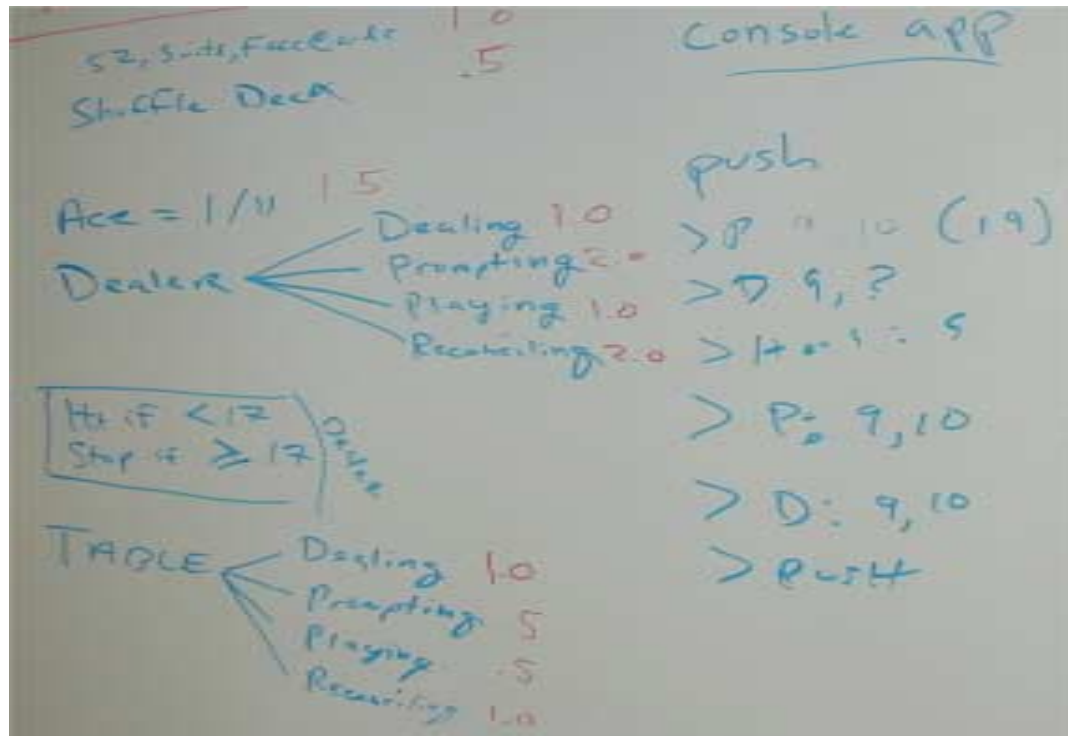 52, Suits, FaceCards 1.0
Shuffle Deck .5
Ace = 1/11 1.5
Dealers
Dealing 1.0
Prompting 2.0
Playing 1.0
Reconciling 2.0
Hit if < 17
Stop if ≥ 17
Dealer
TABLE
Dealing 1.0
Prompting .5
Playing .5
Reconciling 1.0
Console app
push
> P 9, 10 (19)
> D 9, ?
> H or S : S
> P: 9, 10
> D: 9, 10
> PUSH